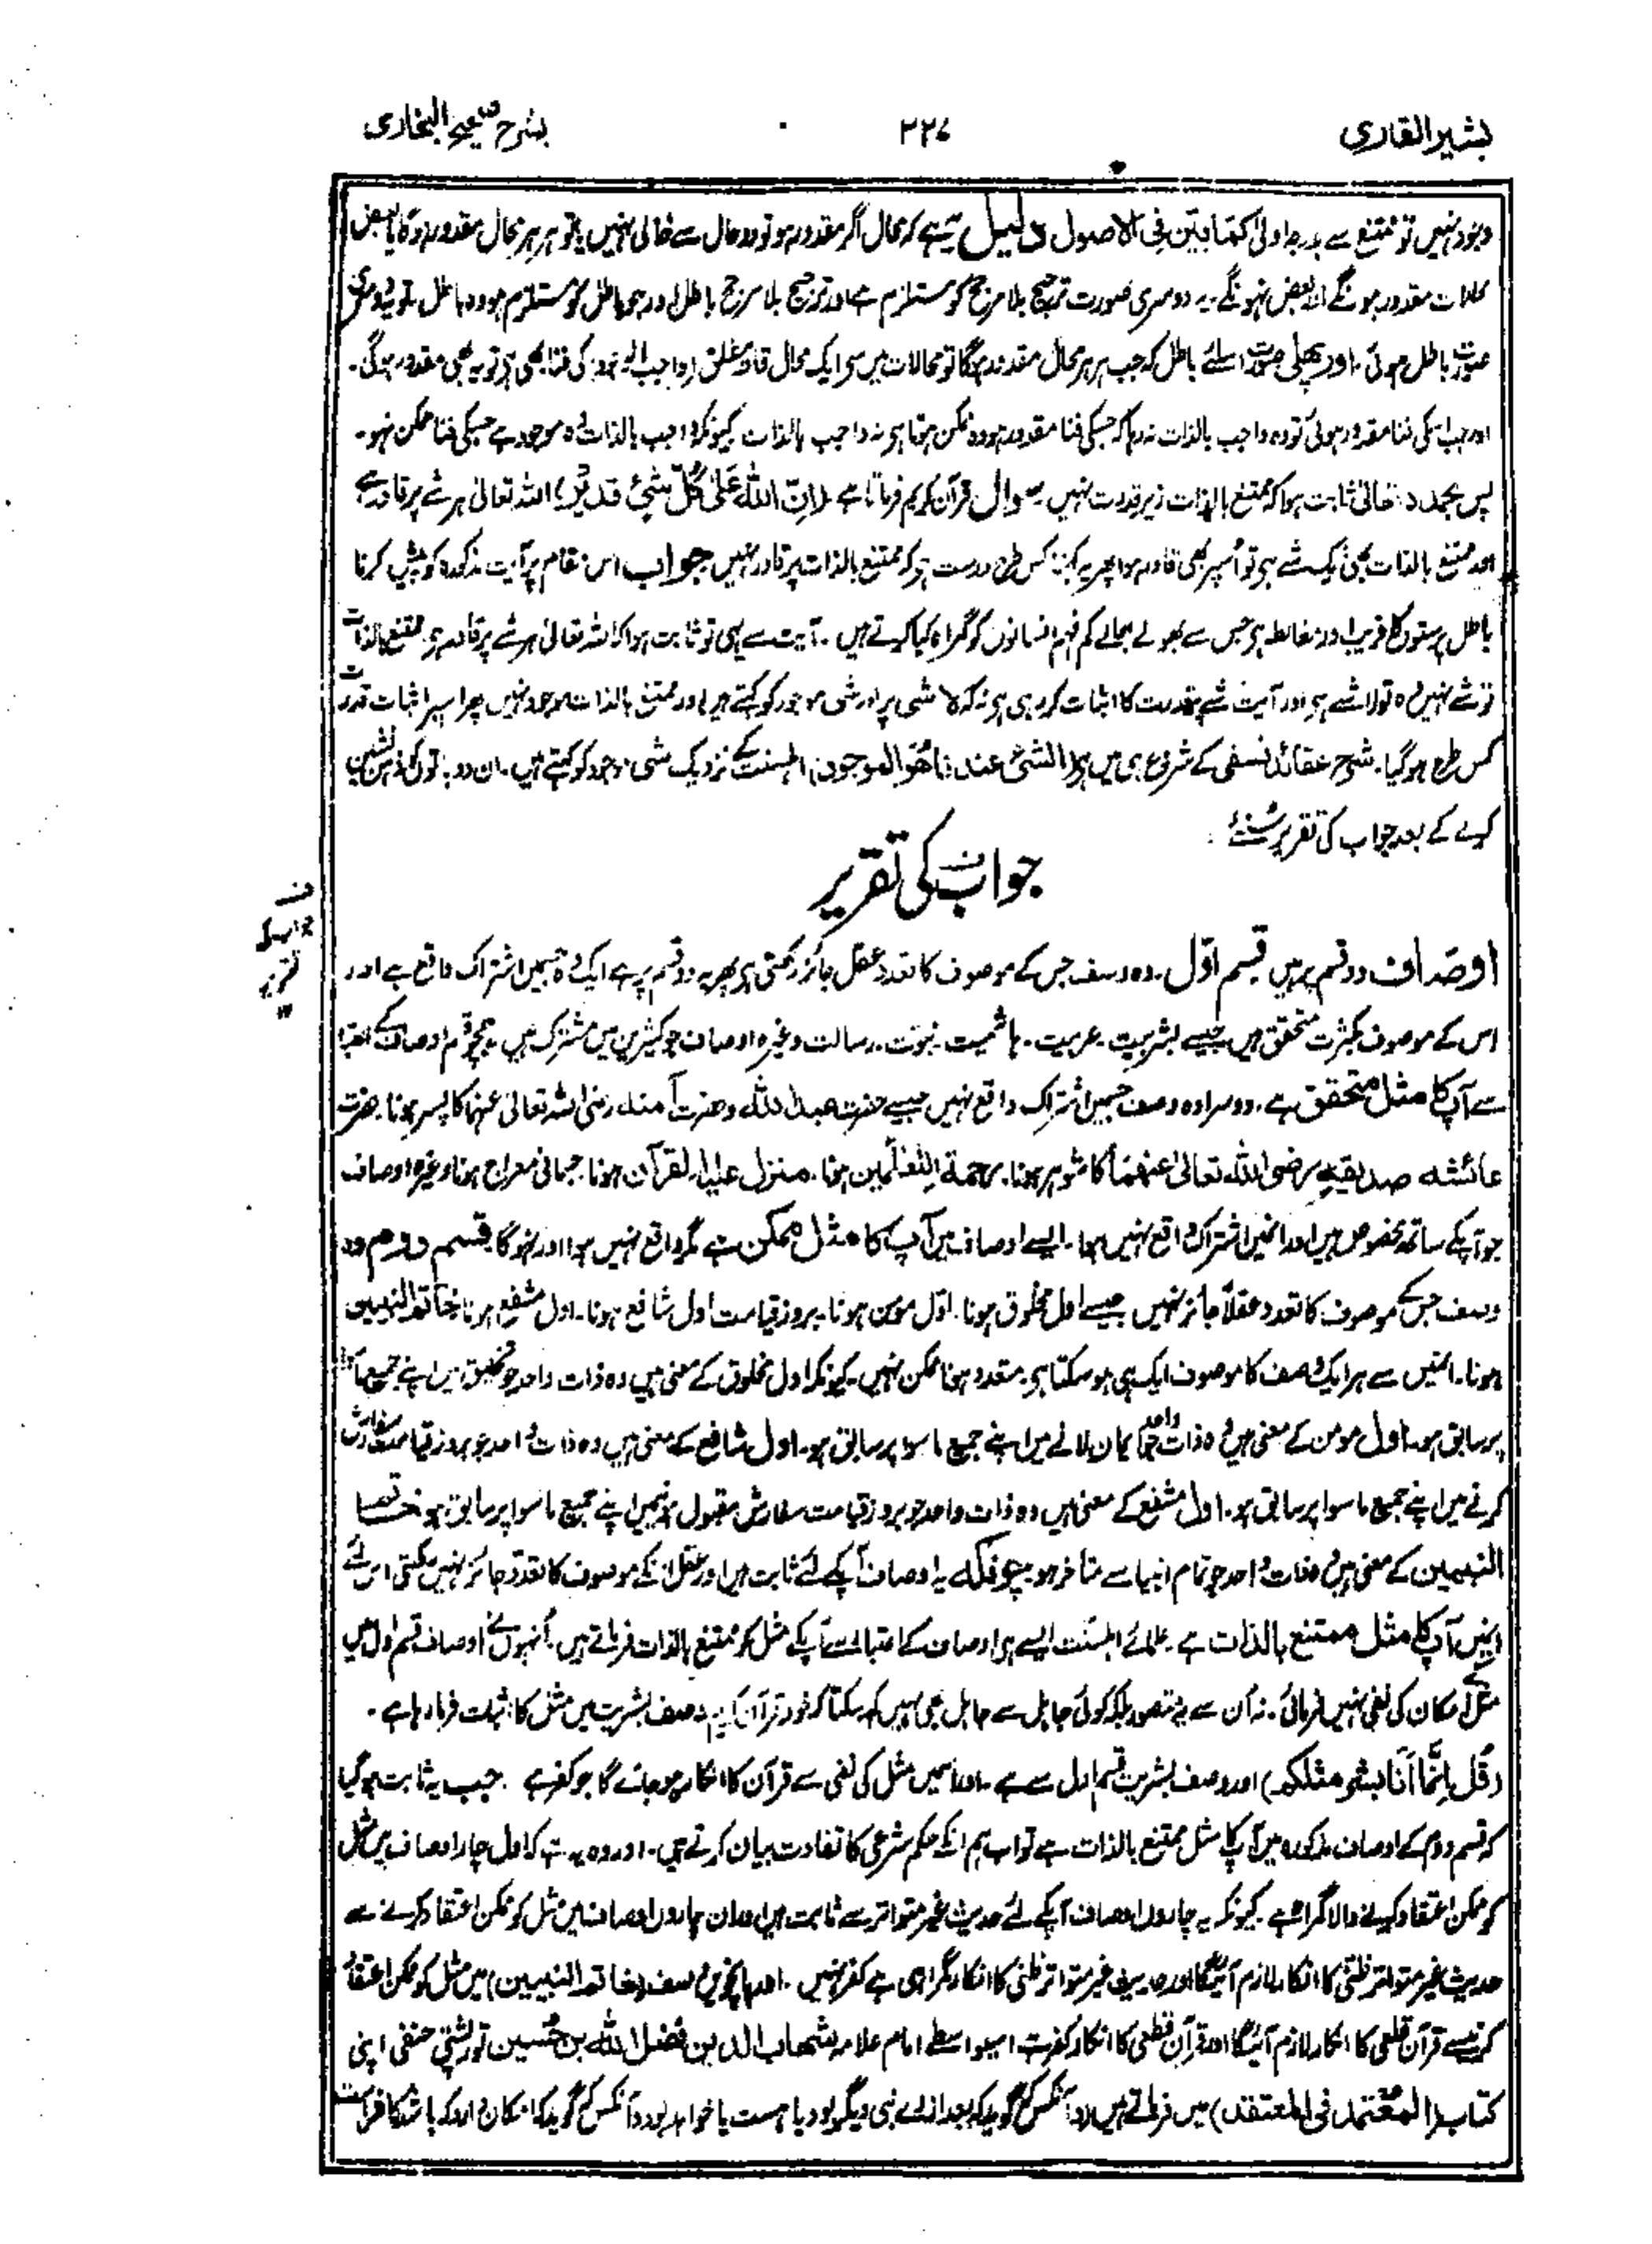 بشیر القاری
۲۲۷
بشرح صحیح البخاری
وجود نہیں تو ممتنع سے بدرجہ اولیٰ کما بین فی الاصول دلیل یہ ہے کہ محال اگر مقدور ہو تو دو حال سے خالی نہیں یا تو ہر ہر محال مقدور ہوگا یا بعض
محالات مقدور ہونگے اور بعض نہونگے۔ یہ دوسری صورت ترجیح بلا مرجح کو مستلزم ہے اور ترجیح بلا مرجح باطل اور جو باطل کو مستلزم ہو وہ باطل تو یہ دوسری
صورت باطل ہوئی۔ اور پہلی صورت اسلئے باطل کہ جب ہر ہر محال مقدور ہوگا تو محالات میں سے ایک محال قادر مطلق (واجب الوجود) کی فنا بھی ہے تو یہ بھی مقدور ہوگی۔
اور جب اسکی فنا مقدور ہوئی تو وہ واجب بالذات نہ رہا کہ جسکی فنا مقدور ہو وہ ممکن ہوتا ہے نہ واجب بالذات کیونکہ واجب بالذات وہ موجود ہے جسکی فنا ممکن نہو۔
پس بحمدہ تعالیٰ ثابت ہوا کہ ممتنع بالذات زیر قدرت نہیں۔ سوال قرآن کریم فرماتا ہے (اِنَّ اللّٰہَ عَلیٰ کُلِّ شَیْئٍ قَدِیْرٌ) اللہ تعالیٰ ہر شے پر قادر ہے
اور ممتنع بالذات بھی ایک شے ہے تو اُسپر بھی قادر ہوا پھر یہ کہنا کس طرح درست ہے کہ ممتنع بالذات پر قادر نہیں جواب اس مقام پر آیت مذکورہ کو پیش کرنا
باطل پرستوں کا فریب اور مغالطہ ہے جس سے بھولے بھالے کم فہم انسانوں کو گمراہ کیا کرتے ہیں۔ آیت سے یہی تو ثابت ہوا کہ اللہ تعالیٰ ہر شے پر قادر ہے ممتنع بالذات
تو شے نہیں وہ تو لاشے ہے اور آیت شے پر قدرت کا اثبات کر رہی ہے نہ کہ لا شی پر اور شی موجود کو کہتے ہیں اور ممتنع بالذات موجود نہیں پھر اسپر اثبات قدرت
کس طرح ہو گیا۔ شرح عقائد نسفی کے شروع ہی میں ہے (الشیئ عندنا ھو الموجود) اہلسنت کے نزدیک شی موجود کو کہتے ہیں۔ ان دو باتوں کی ذہن نشین
کرنے کے بعد جواب کی تقریر سُنئے :
جواب کی تقریر
ف
جواب کی
تقریر
۱۲
اوصاف دو قسم پر ہیں قسم اوّل۔ وہ وصف جس کے موصوف کا تعدد عقل جائز رکھتی ہے پھر یہ دو قسم پر ہے ایک وہ جسمیں اشتراک واقع ہے اور
اس کے موصوف بکثرت متحقق ہیں جیسے بشریت۔ عربیت۔ ہاشمیت۔ نبوت۔ رسالت وغیرہ اوصاف جو کثیرین میں مشترک ہیں اوصاف کے اعتبار
سے آپ کا مثل متحقق ہے۔ دوسرا وہ وصف جسمیں اشتراک واقع نہیں جیسے حضرت عبد اللہ و حضرت آمنہ رضی اللہ تعالیٰ عنہما کا پسر ہونا۔ حضرت
عائشہ صدیقہ رضی اللہ تعالیٰ عنھما کا شوہر ہونا۔ رحمۃ للعٰلمین ہونا۔ منزل علیہ القرآن ہونا۔ جسمانی معراج ہونا وغیرہ اوصاف
جو آپکے ساتھ مخصوص ہیں اور انمیں اشتراک واقع نہیں ہوا۔ ایسے اوصاف میں آپ کا مثل ممکن ہے مگر واقع نہیں ہوا اور نہوگا قسم دوم وہ
وصف جس کے موصوف کا تعدد عقلاً جائز نہیں جیسے اول مخلوق ہونا۔ اوّل مومن ہونا۔ بروز قیامت اول شافع ہونا۔ اول مشفع ہونا خاتم النبیین
ہونا۔ انمیں سے ہر ایک وصف کا موصوف ایک ہی ہو سکتا ہے۔ متعدد ہونا ممکن نہیں۔ کیونکہ اول مخلوق کے معنی ہیں وہ ذات واحد جو تخلیق میں اپنے جمیع ماسوا
پر سابق ہو۔ اول مومن کے معنی ہیں وہ ذات واحد جو ایمان لانے میں اپنے جمیع ماسوا پر سابق ہو۔ اول شافع کے معنی ہیں وہ ذات واحد جو بروز قیامت سفارش
کرنے میں اپنے جمیع ماسوا پر سابق ہو۔ اول مشفع کے معنی ہیں وہ ذات واحد جو بروز قیامت سفارش مقبول ہونیمیں اپنے جمیع ماسوا پر سابق ہو خاتم
النبیین کے معنی ہیں وہ ذات واحد جو تمام انبیا سے متاخر ہو۔ چونکہ یہ اوصاف آپکے لئے ثابت ہیں اور عقل انکے موصوف کا تعدد جائز نہیں رکھتی اس لئے
انمیں آپ کا مثل ممتنع بالذات ہے۔ علمائے اہلسنت ایسے ہی اوصاف کے اعتبار سے آپکے مثل کو ممتنع بالذات فرماتے ہیں۔ اُنہوں نے اوصاف قسم اول میں
مثل کے امکان کی نفی نہیں فرمائی۔ نہ اُن سے یہ متصور بلکہ کوئی جاہل سے جاہل بھی نہیں کہہ سکتا کہ خود قرآن کریم وصف بشریت میں مثل کا اثبات فرما رہا ہے۔
(قُل اِنَّمَا اَنَا بَشَرٌ مثلکم) اور وصف بشریت قسم اول سے ہے۔ اور اسمیں مثل کی نفی سے قرآن کا انکار ہو جائے گا جو کفر ہے۔ جب یہ ثابت ہو گیا
کہ قسم دوم کے اوصاف مذکورہ میں آپ کا مثل ممتنع بالذات ہے تو اب ہم انکے حکم شرعی کا تفاوت بیان کرتے ہیں۔ اور وہ یہ ہے کہ اول چار اوصاف میں مثل
کو ممکن اعتقاد کرنے والا گمراہ ہے۔ کیونکہ یہ چاروں اوصاف آپکے لئے حدیث غیر متواتر سے ثابت ہیں اور ان چاروں اوصاف میں مثل کو ممکن اعتقاد کرنے سے
حدیث غیر متواتر ظنی کا انکار لازم آئیگا اور حدیث غیر متواتر ظنی کا انکار گمراہی ہے کفر نہیں۔ اور پانچویں وصف (خاتم النبیین) میں مثل کو ممکن اعتقاد
کرنیسے قرآن قطعی کا انکار لازم آئیگا اور قرآن قطعی کا انکار کفر ہے اسیواسطے امام علامہ شھاب الدین بن فضل اللہ بن حُسین تورپشتی حنفی اپنی
کتاب (المُعْتَمد فی المعتقد) میں فرماتے ہیں (وآنکس کہ گوید کہ بعد از وے نبی دیگر بود یا ہست یا خواہد بود وآنکس کہ گوید کہ امکان دارد کہ باشد کافر است